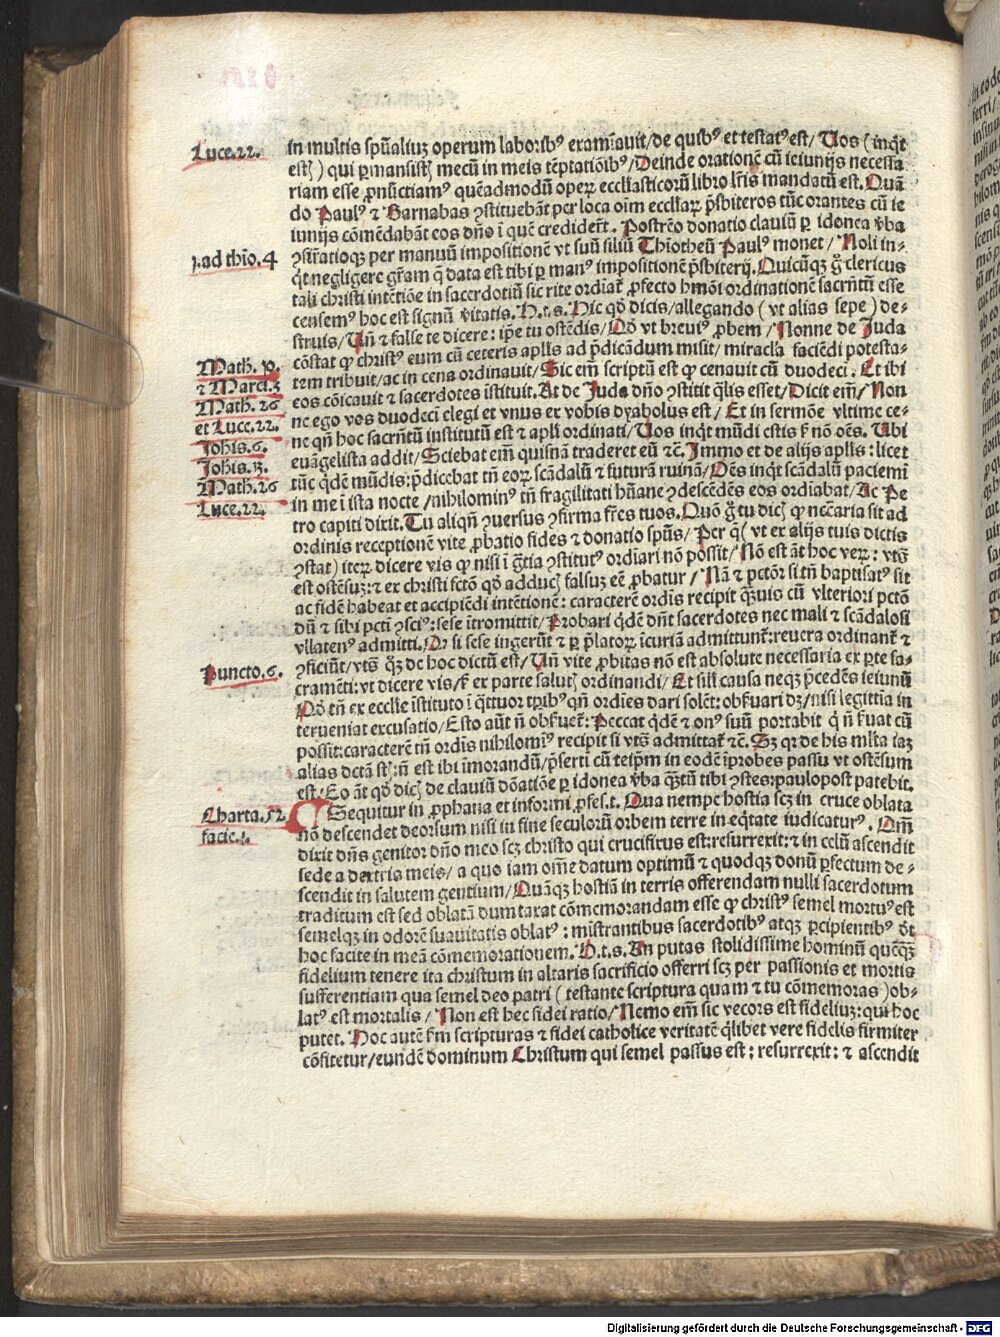 Luce.22.
in multis spũaliuz operum laboribꝰ examiauit/de quibꝰ et testatꝰ est/ Uos (inq̃t
estꝭ) qui ꝑmansistꝭ mecũ in meis tẽptatiõibꝰ/ Deinde orationẽ cũ ieiunijs necessa
riam esse ꝓnũctiamꝰ quẽadmodũ opeꝝ eccl̃iasticorũ libro lr̃is mandatũ est. Quã
do Paulꝰ ⁊ Barnabas ꝯstituebãt per loca oĩm eccl̃iaꝝ p̃sbiteros tũc orantes cũ ie
iunijs cõmẽdabãt eos dñs ĩ quẽ credider̃t. Postrẽo donatio clauiũ ꝑ idonea ṽba
j.ad thio.4
ꝯsir̃atioqꝫ per manuũ impositionẽ vt suũ filiũ Thiotheũ Paulꝰ monet/ Noli in-
q̃t negligere gr̃am q̃ data est tibi ꝑ manꝰ impositionẽ p̃sbiterij. Quicũqꝫ g̃ clericus
tali christi intẽtiõe in sacerdotiũ sic rite ordiat̃ ꝓfecto hmõi ordinationẽ sacrñtũ esse
censemꝰ hoc est signũ ṽitatis. H.t.s. Hic qð dicis/allegando (vt alias sepe) de-
struis/ Uñ ⁊ false te dicere: ip̃e tu ostẽdis/ Qð vt breuiꝰ ꝓbem/ Nonne de Juda
Math. 10.
cõstat ꝙ christꝰ eum cũ ceteris apl̃is ad p̃dicãdum misit/ miracl̃a faciẽdi potesta-
⁊ Marci.3
tem tribuit/ac in cena ordinauit/ Sic em̃ scriptũ est ꝙ cenauit cũ duodeci. Et ibi
Math. 26
eos cõicauit ⁊ sacerdotes ĩstituit. At de Juda dñо ꝯstitit q̃lis esset/ Dicit em̃/ Non
et Luce.22.
ne ego vos duodeci elegi et vnus ex vobis dyabolus est/ Et in sermõe vltime ce-
Johis.6.
ne qñ hoc sacrñtũ institutũ est ⁊ apl̃i ordinati/ Uos inq̃t mũdi estis ꝭ nõ oẽs. Ubi
Johis.13.
euãgelista addit/ Sciebat em̃ quisnã traderet eũ ⁊c̃. Immo et de alijs apl̃is: licet
Math.26
tũc q̃dẽ mũdis: p̃dicebat tñ eoꝝ scãdalũ ⁊ futurã ruinã/ Oẽs inq̃t scãdalũ paciemĩ
Luce.22.
in me ĩ ista nocte/nihilominꝰ tñ fragilitati hũane ꝯdescẽdẽs eos ordĩabat/ Ac Pe
tro capiti dixit. Tu aliqñ ꝯuersus ꝯfirma fr̃es tuos. Quõ g̃ tu dicꝭ ꝙ necc̃aria sit ad
ordinis receptionẽ vite ꝓbatio fides ⁊ donatio spũs/ Per q̃ (vt ex alijs tuis dictis
ꝯstat) iteꝝ dicere vis ꝙ nisi ĩ gr̃tia ꝯstitutꝰ ordĩari nõ possit/ Nõ est ãt hoc veꝝ: vtꝫ
est ostẽsuꝫ: ⁊ ex christi fctõ qð adducꝭ falsuꝫ eẽ ꝓbatur/ Nã ⁊ pctõr si tñ baptisatꝰ sit
ac fidẽ habeat et accipiẽdi intẽtionẽ: caracterẽ ordĩs recipit q̃ꝫuis cũ vlteriori pctõ
dũ ⁊ sibi pcti ꝯsciꝰ: sese ĩtromittit/ Probari q̃dẽ dñt sacerdotes nec mali ⁊ scãdalosi
vllatenꝰ admitti. Qꝫ si sese ingerũt ⁊ ꝑ p̃latoꝝ ĩcuriã admittunt̃: reuera ordinant̃ ⁊
Puncto.6.
ꝯficiũt/ vtꝫ q̃ꝫ de hoc dictũ est/ Uñ vite ꝓbitas nõ est absolute necessaria ex ꝑte sa-
cramẽti: vt dicere vis/ꝭ ex parte salutꝭ ordinandi/ Et sil̃i causa neqꝫ p̃cedẽs ieiunũ
Qð tñ ex ecclie ĩstituto ĩ q̃ttuor tꝑibꝰ qñ ordĩes dari solẽt: obẽuari dꝫ/nisi legittĩa in
terueniat excusatio/ Esto aũt ñ obẽuet̃: Peccat q̃dẽ ⁊ onꝰ suũ portabit q̃ ñ ẽuat cũ
possit: caracterẽ tñ ordĩs nihilomiꝰ recipit si vtꝫ admittat̃ ⁊c̃. Sꝫ qꝛ de his ml̃ta iaꝫ
alias dctã stꝭ: ñ est ibi ĩmorandũ/p̃serti cũ teip̃m in eodẽ ĩprobes passu vt ostẽsum
est/ Eo ãt qð dicꝭ de clauiũ dõatiõe ꝑ idonea ṽba q̃ꝫtũ tibi ꝯstes: paulopost patebit.
Charta.52.
Sequitur in ꝓphana et informi ꝓfes.t. Qua nempe hostia scꝫ in cruce oblata
facie.1.
nõ descendet deorsum nisi in fine seculorũ orbem terre in eq̃tate iudicaturꝰ. Om̃
dixit dñs genitor dño meo scꝫ christo qui crucifixus est: resurrexit: ⁊ in celũ ascendit
sede a dextris meis/ a quo iam om̃e datum optimũ ⁊ quodqꝫ donũ ꝑfectum de-
scendit in salutem gentium/ Quãqꝫ hostiã in terris offerendam nulli sacerdotum
traditum est sed oblatã dumtaxat cõmemorandam esse ꝙ christꝰ semel mortuꝰ est
semelqꝫ in odorẽ suauitatis oblatꝰ: mistrantibus sacerdotibꝰ atqꝫ ꝑcipientibꝰ
hoc facite in meã cõmemorationem. H.t.s. An putas stolidissime hominũ quẽqꝫ
fidelium tenere ita christum in altaris sacrificio offerri scꝫ per passionis et mortis
sufferentiam qua semel deo patri (testante scriptura quam ⁊ tu cõmemoras) ob-
latꝰ est mortalis/ Non est hec fidei ratio/ Nemo em̃ sic vecors est fideliuꝫ: qui hoc
putet. Hoc autẽ ẽm scripturas ⁊ fidei catholice veritatẽ q̃libet vere fidelis firmiter
cõfitetur/eundẽ dominum Christum qui semel passus est: resurrexit: ⁊ ascendit
Digitalisierung gefördert durch die Deutsche Forschungsgemeinschaft - DFG